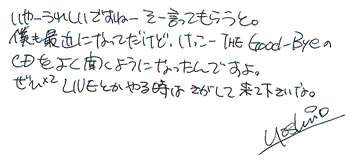 いやーうれしいですねー そー言ってもらうと。
僕も最近になってだけど、けっこー THE Good-Bye の
CDをよく聞くようになったんですよ。
ぜひ×2 LIVEとかやる時は さがして来て下さいな。
Yoshiio